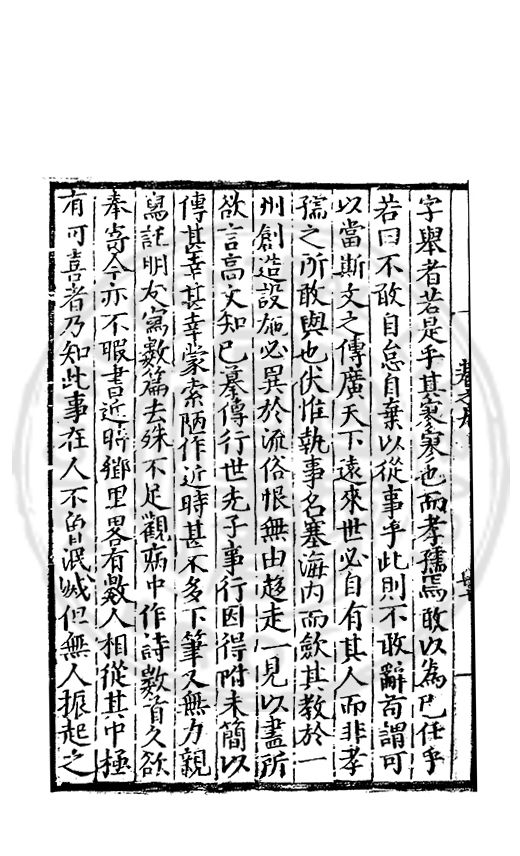 字舉者若是乎其寥寥也而孝孺焉敢以為己任乎
若曰不敢自怠自棄以從事乎此則不敢辭苟謂可
以當斯文之傳廣天下遠來世必自有其人而非孝
孺之所敢與也伏惟執事名塞海内而歛其教於一
州創造設施必異於流俗恨無由趍走一見以盡所
欲言高文知已墓傳行世先子事行因得附末簡以
傳甚幸甚幸蒙索陋作近時甚不多下筆又無力親
寫託朋友寫數篇去殊不足觀病中作詩數首久欲
奉寄今亦不暇書近時鄉里畧有數人相從其中極
有可喜者乃知此事在人不曾泯滅但無人振起之